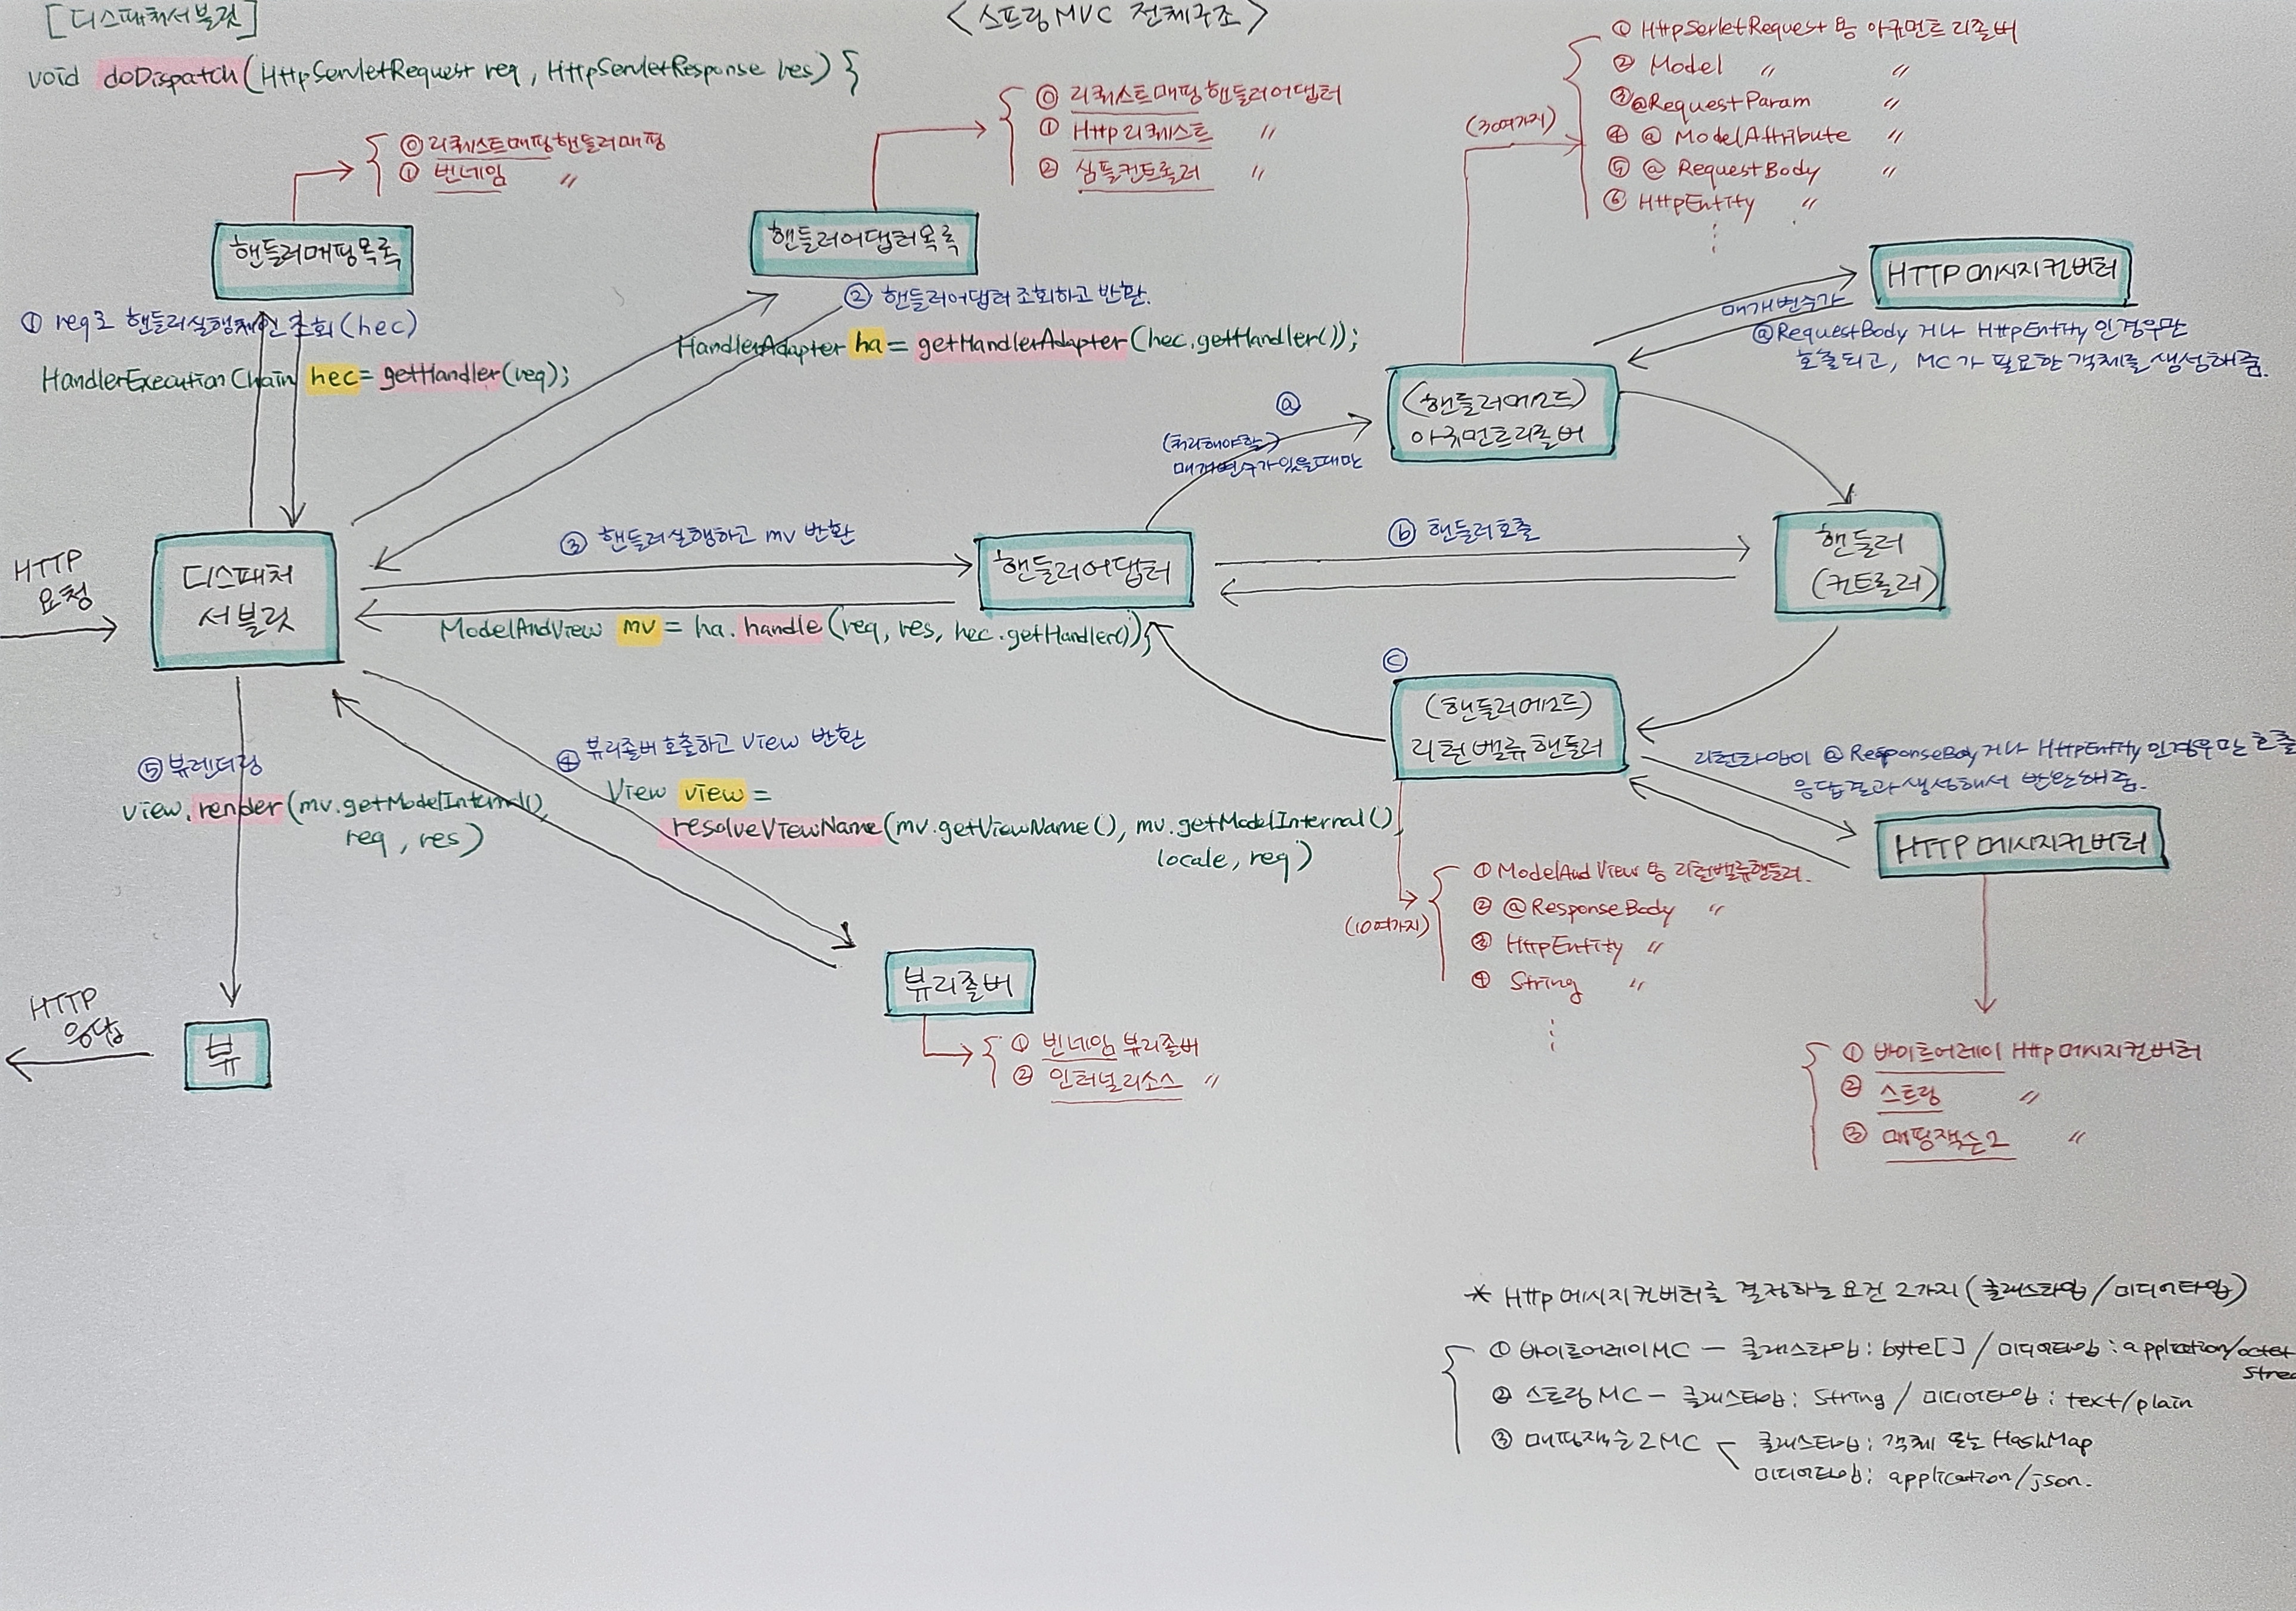 [디스패처서블릿]
<스프링 MVC 전체구조>
void doDispatch(HttpServletRequest req, HttpServletResponse res) {
⓪ 리퀘스트매핑핸들러매핑
① 빈네임 〃
핸들러매핑목록
① req로 핸들러실행체인 조회(hec)
HandlerExecutionChain hec = getHandler(req);
⓪ 리퀘스트매핑핸들러어댑터
① Http리퀘스트 〃
② 심플컨트롤러 〃
핸들러어댑터목록
② 핸들러어댑터 조회하고 반환.
HandlerAdapter ha = getHandlerAdapter(hec.getHandler());
(30여가지)
① HttpSerletRequest 용 아규먼트 리졸버
② Model 〃 〃
③ @RequestParam 〃
④ @ ModelAttribute 〃
⑤ @ RequestBody 〃
⑥ HttpEntity 〃
HTTP 메시지컨버터
매개변수가
@RequestBody 거나 HttpEntity 인경우만
호출되고, MC가 필요한 객체를 생성해줌.
ⓐ
(처리해야할)
매개변수가있을때만
(핸들러메소드)
아규먼트리졸버
HTTP
요청
디스패처
서블릿
③ 핸들러실행하고 mv 반환
ModelAndView mv = ha.handle(req, res, hec.getHandler());
핸들러어댑터
ⓑ 핸들러호출
핸들러
(컨트롤러)
ⓒ
(핸들러메소드)
리턴밸류핸들러
리턴타입이 @ResponseBody 거나 HttpEntity 인경우만 호출
응답결과 생성해서 반환해줌.
HTTP 메시지컨버터
⑤ 뷰렌더링
view.render(mv.getModelInternal(),
req, res)
④ 뷰리졸버 호출하고 View 반환
View view =
resolveViewName(mv.getViewName(), mv.getModelInternal(),
locale, req)
(10여가지)
① ModelAndView 용 리턴밸류핸들러.
② @ResponseBody 〃
③ HttpEntity 〃
④ String 〃
뷰리졸버
① 빈네임 뷰리졸버
② 인터널리소스 〃
HTTP
응답
뷰
① 바이트어레이 Http메시지컨버터
② 스트링 〃
③ 매핑잭슨2 〃
* Http 메시지컨버터를 결정하는 요건 2가지 (클래스타입/미디어타입)
① 바이트어레이MC - 클래스타입: byte[] / 미디어타입: application/octet
② 스트링 MC - 클래스타입: String / 미디어타입: text/plain
③ 매핑잭슨2MC - 클래스타입: 객체 또는 HashMap
미디어타입: application/json.